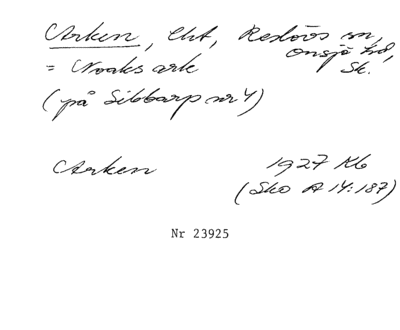 Arken, Eht, Reslövs sn,
Onsjö hd,
= Noaks ark Sk.
(på Sibbarp nr 4)
Arken 1927 Kb
(Sko A 14:187)
Nr 23925